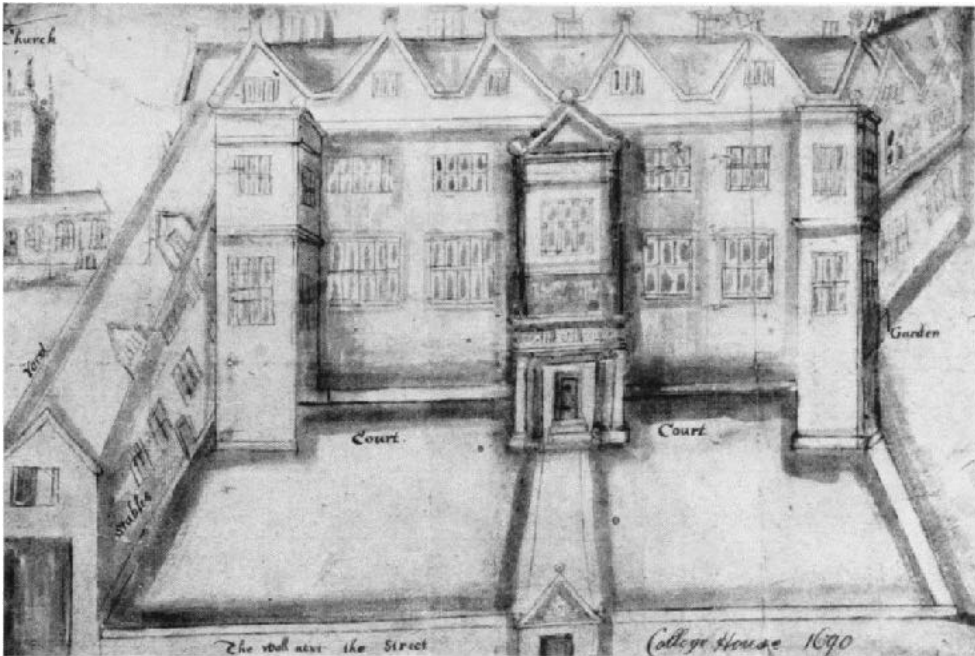 Church
Yard
Garden
Court.
Court
Stables
The Wall next the Street
College House 1690